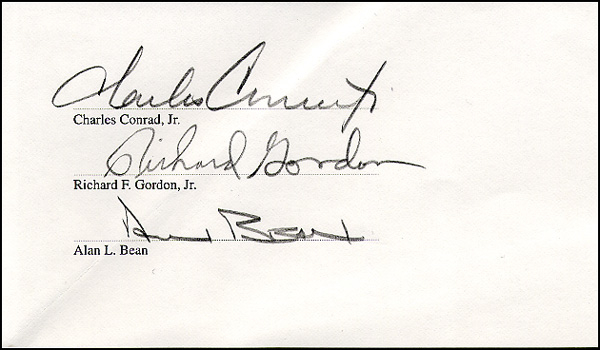 Charles Conrad Jr
Charles Conrad, Jr.
Richard Gordon
Richard F. Gordon, Jr.
Alan Bean
Alan L. Bean